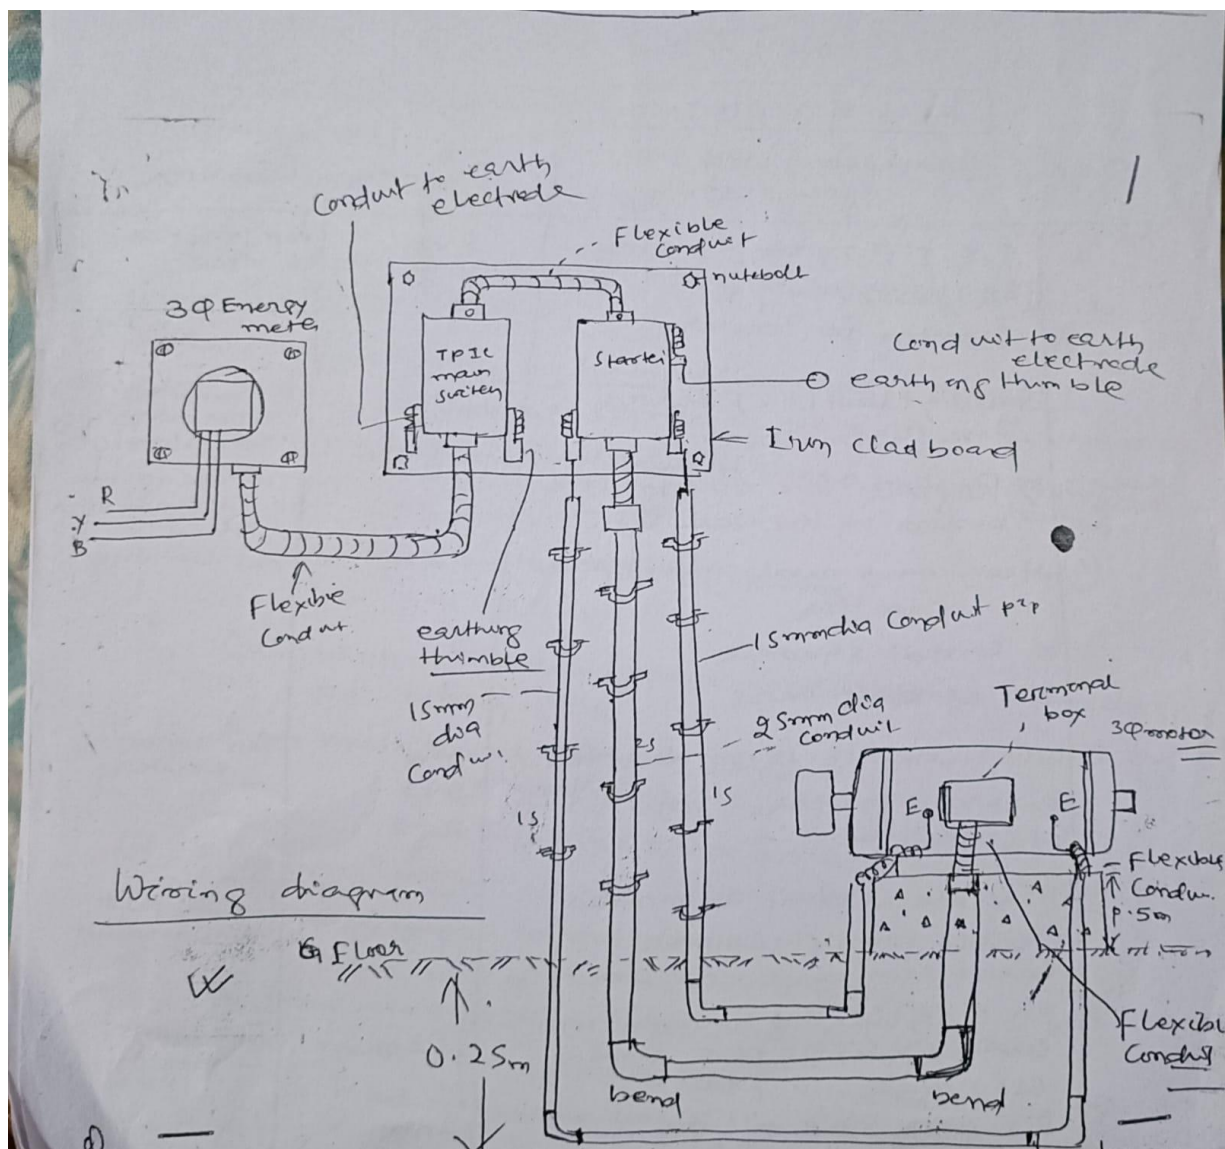 Conduit to earth
electrode
Flexible
conduit
nutebolt
3Φ Energy
meter
TPIC
main
switch
Starter
Conduit to earth
electrode
earthing thimble
Iron clad board
R
Y
B
Flexible
Conduit
earthing
thimble
15mm dia Conduit pip
15mm
dia
Condui.
25mm dia
Conduit
25
15
15
Terminal
box
3Φ motor
E
E
Flexible
Condu.
.5m
Wiring diagram
G Floor
0.25m
Flexibl
Conduit
bend
bend